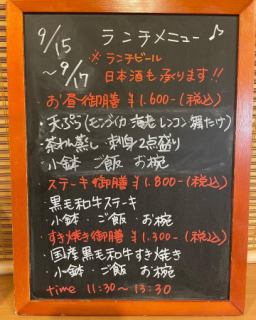 9/15
～9/17
ランチメニュー♪
※ランチビール
日本酒も承ります!!
・お昼御膳 ¥1.600-(税込)
・天ぷら(モンゴイカ 海老 レンコン 舞たけ)
・茶わん蒸し 刺身2点盛り
・小鉢 ご飯 お椀
・ステーキ御膳 ¥1.800-(税込)
・黒毛和牛ステーキ
・小鉢 ・ご飯 お椀
・すき焼き御膳 ¥1.300-(税込)
・国産黒毛和牛すき焼き
・小鉢 ご飯 お椀
time 11:30～13:30